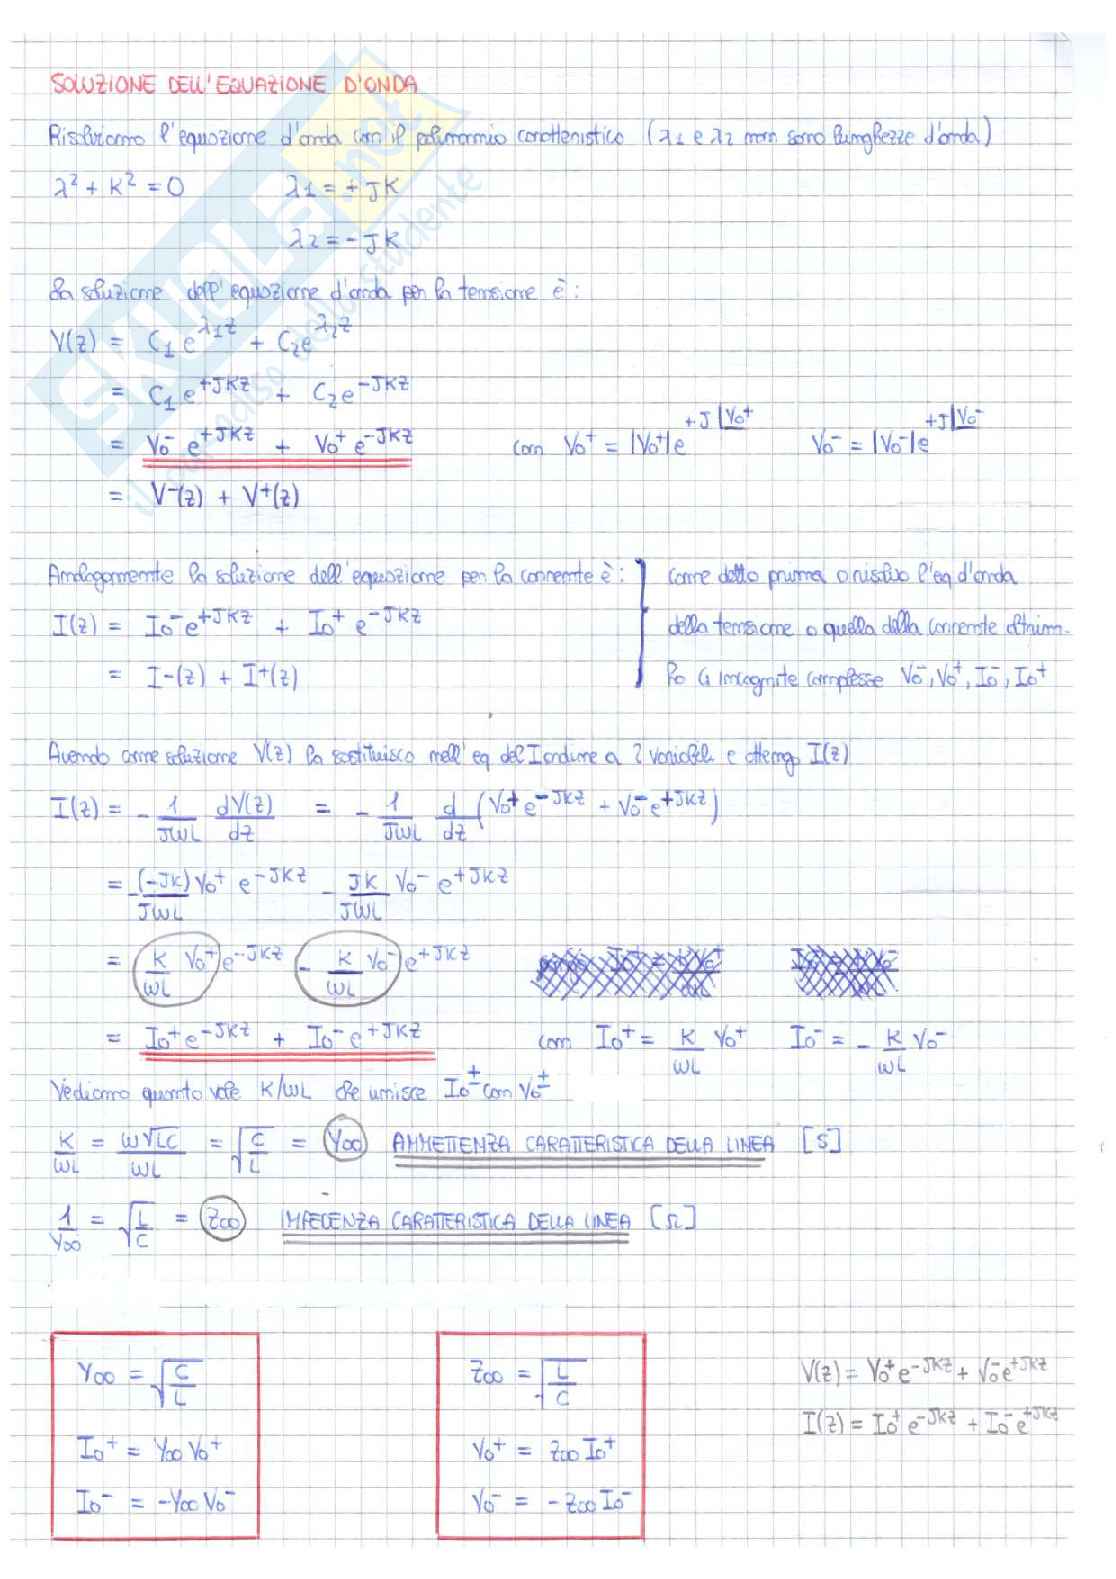 SOLUZIONE DELL'EQUAZIONE D'ONDA
Risolviamo l'equazione d'onda con il polinomio caratteristico (λ1 e λ2 non sono lunghezze d'onda)
λ² + K² = 0   λ1 = + JK
λ2 = - JK
La soluzione dell'equazione d'onda per la tensione è:
V(z) = C₁ e^{λ1z} + C₂ e^{λ2z}
= C₁ e^{+JKz} + C₂ e^{-JKz}
= V₀⁻ e^{+JKz} + V₀⁺ e^{-JKz}   con V₀⁺ = |V₀⁺| e^{+J∠V₀⁺}   V₀⁻ = |V₀⁻| e^{+J∠V₀⁻}
= V⁻(z) + V⁺(z)
Analogamente la soluzione dell'equazione per la corrente è:
I(z) = I₀⁻ e^{+JKz} + I₀⁺ e^{-JKz}
= I⁻(z) + I⁺(z)
come detto prima o risolvo l'eq d'onda
della tensione o quella della corrente altrim.
ho 4 incognite complesse V₀⁻, V₀⁺, I₀⁻, I₀⁺
Avendo come soluzione V(z) la sostituisco nell'eq del I ordine a 2 variabili e otteng I(z)
I(z) = - 1/JWL dV(z)/dz = - 1/JWL d/dz (V₀⁺ e^{-JKz} + V₀⁻ e^{+JKz})
= -(-JK)/JWL V₀⁺ e^{-JKz} - JK/JWL V₀⁻ e^{+JKz}
= K/WL V₀⁺ e^{-JKz} - K/WL V₀⁻ e^{+JKz}
= I₀⁺ e^{-JKz} + I₀⁻ e^{+JKz}   con I₀⁺ = K/WL V₀⁺   I₀⁻ = - K/WL V₀⁻
Vediamo quanto vale K/WL che unisce I₀± con V₀±
K/WL = W√LC/WL = √C/L = Y∞ AMMETTENZA CARATTERISTICA DELLA LINEA [S]
1/Y∞ = √L/C = Z∞ IMPEDENZA CARATTERISTICA DELLA LINEA [Ω]
Y∞ = √C/L
I₀⁺ = Y∞ V₀⁺
I₀⁻ = -Y∞ V₀⁻
Z∞ = √L/C
V₀⁺ = Z∞ I₀⁺
V₀⁻ = - Z∞ I₀⁻
V(z) = V₀⁺ e^{-JKz} + V₀⁻ e^{+JKz}
I(z) = I₀⁺ e^{-JKz} + I₀⁻ e^{+JKz}
SKUOLA.net
il paradiso dello studente